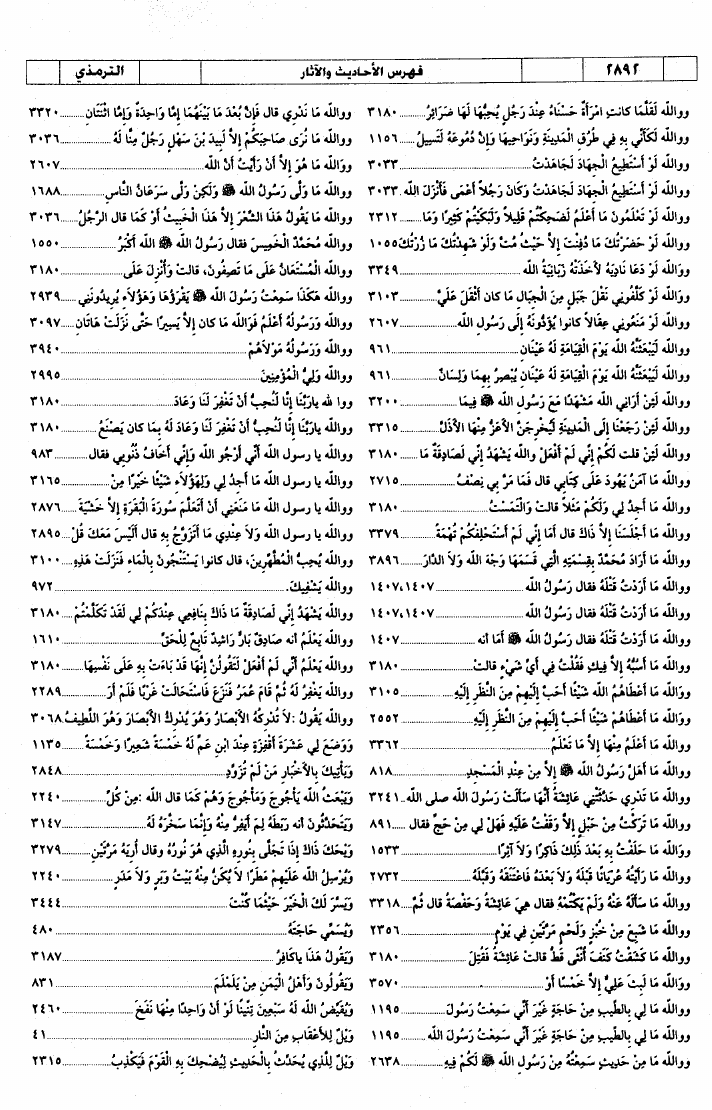 ٢٨٩٢
فهرس الأحاديث والآثار
الترمذي
ووالله لَقَلَّمَا كانت امْرَأَةٌ حَسْنَاءُ عِنْدَ رَجُلٍ يُحِبُّهَا لَهَا ضَرَائِرُ ٣١٨٠
ووالله لَكَأَنِّي بِهِ فِي طُرُقِ الْمَدِينَةِ وَنَوَاحِيهَا وَإِنَّ دُمُوعَهُ لَتَسِيلُ ١١٥٦
ووالله لَوْ أَسْتَطِيعُ الْجِهَادَ لَجَاهَدْتُ ٣٠٣٣
ووالله لَوْ أَسْتَطِيعُ الْجِهَادَ لَجَاهَدْتُ وَكَانَ رَجُلاً أَعْمَى فَأَنْزَلَ الله ٣٠٣٣
ووالله لَوْ تَعْلَمُونَ مَا أَعْلَمُ لَضَحِكْتُمْ قَلِيلاً وَلَبَكَيْتُمْ كَثِيرًا وَمَا ٢٣١٢
ووالله لَوْ حَضَرْتُكَ مَا دُفِنْتَ إِلاَّ حَيْثُ مُتَّ وَلَوْ شَهِدْتُكَ مَا زُرْتُكَ ١٠٥٥
ووالله لَوْ دَعَا نَادِيَهُ لأَخَذَتْهُ زَبَانِيَةُ الله ٣٣٤٩
ووالله لَوْ كَلَّفُونِي نَقْلَ جَبَلٍ مِنَ الْجِبَالِ مَا كان أَثْقَلَ عَلَيَّ ٣١٠٣
ووالله لَوْ مَنَعُونِي عِقَالاً كانوا يُؤَدُّونَهُ إِلَى رَسُولِ الله ٢٦٠٧
ووالله لَيَبْعَثَنَّهُ الله يَوْمَ الْقِيَامَةِ لَهُ عَيْنَانِ ٩٦١
ووالله لَيَبْعَثَنَّهُ الله يَوْمَ الْقِيَامَةِ لَهُ عَيْنَانِ يُبْصِرُ بِهِمَا وَلِسَانٌ ٩٦١
ووالله لَئِنْ أَرَانِي الله مَشْهَدًا مَعَ رَسُولِ الله ﷺ فِيمَا ٣٢٠٠
ووالله لَئِنْ رَجَعْنَا إِلَى الْمَدِينَةِ لَيُخْرِجَنَّ الأَعَزُّ مِنْهَا الأَذَلَّ ٣٣١٥
ووالله لَئِنْ قلت لَكُمْ إِنِّي لَمْ أَفْعَلْ والله يَشْهَدُ إِنِّي لَصَادِقَةٌ مَا ٣١٨٠
ووالله مَا آمَنُ يَهُودَ عَلَى كِتَابِي قال فَمَا مَرَّ بِي نِصْفُ ٢٧١٥
ووالله مَا أَجِدُ لِي وَلَكُمْ مَثَلاً قالت وَالْتَمَسْتُ ٣١٨٠
ووالله مَا أَجْلَسَنَا إِلاَّ ذَاكَ قال أَمَا إِنِّي لَمْ أَسْتَحْلِفْكُمْ تُهْمَةً ٣٣٧٩
ووالله مَا أَرَادَ مُحَمَّدٌ بِقِسْمَتِهِ الَّتِي قَسَمَهَا وَجْهَ الله وَلاَ الدَّارَ ٣٨٩٦
ووالله مَا أَرَدْتُ قَتْلَهُ فقال رَسُولُ الله ١٤٠٧،١٤٠٧
ووالله مَا أَرَدْتُ قَتْلَهُ فقال رَسُولُ الله ١٤٠٧،١٤٠٧
ووالله مَا أَرَدْتُ قَتْلَهُ فقال رَسُولُ الله ﷺ أَمَا أنه ١٤٠٧
ووالله مَا أَسُبُّهُ إِلاَّ فِيكِ فَقُلْتُ فِي أَيِّ شَيْءٍ قالت ٣١٨٠
ووالله مَا أَعْطَاهُمُ الله شَيْئًا أَحَبَّ إِلَيْهِمْ مِنَ النَّظَرِ إِلَيْهِ ٣١٠٥
ووالله مَا أَعْطَاهُمْ شَيْئًا أَحَبَّ إِلَيْهِمْ مِنَ النَّظَرِ إِلَيْهِ ٢٥٥٢
ووالله مَا أَعْلَمُ مِنْهَا إِلاَّ مَا تَعْلَمُ ٣٣٦٢
ووالله مَا أَهَلَّ رَسُولُ الله ﷺ إِلاَّ مِنْ عِنْدِ الْمَسْجِدِ ٨١٨
ووالله مَا تَدْرِي حَدَّثَتْنِي عَائِشَةُ أَنَّهَا سَأَلَتْ رَسُولَ الله صلى الله ٣٢٤١
ووالله مَا تَرَكْتُ مِنْ حَبْلٍ إِلاَّ وَقَفْتُ عَلَيْهِ فَهَلْ لِي مِنْ حَجٍّ فقال ٨٩١
ووالله مَا حَلَفْتُ بِهِ بَعْدَ ذَلِكَ ذَاكِرًا وَلاَ آثِرًا ١٥٣٣
ووالله مَا رَأَيْتُهُ عُرْيَانًا قَبْلَهُ وَلاَ بَعْدَهُ فَاعْتَنَقَهُ وَقَبَّلَهُ ٢٧٣٢
ووالله مَا سَأَلَهُ عَنْهُ وَلَمْ يَكْتُمْهُ فقال هِيَ عَائِشَةُ وَحَفْصَةُ قال ثُمَّ ٣٣١٨
ووالله مَا شَبِعَ مِنْ خُبْزٍ وَلَحْمٍ مَرَّتَيْنِ فِي يَوْمٍ ٢٣٥٦
ووالله مَا كَشَفْتُ كَنَفَ أُنْثَى قَطُّ قالت عَائِشَةُ فَقُتِلَ ٣١٨٠
ووالله مَا لَبِثَ عَلِيٌّ إِلاَّ خَمْسًا أَوْ ٣٥٧٠
ووالله مَا لِي بِالطِّيبِ مِنْ حَاجَةٍ غَيْرَ أَنِّي سَمِعْتُ رَسُولَ ١١٩٥
ووالله مَا لِي بِالطِّيبِ مِنْ حَاجَةٍ غَيْرَ أَنِّي سَمِعْتُ رَسُولَ الله ١١٩٥
ووالله مَا مِنْ حَدِيثٍ سَمِعْتُهُ مِنْ رَسُولِ الله ﷺ لَكُمْ فِيهِ ٢٦٣٨
ووالله مَا نَدْرِي قال فَإِنَّ بُعْدَ مَا بَيْنَهُمَا إِمَّا وَاحِدَةٌ وَإِمَّا اثْنَتَانِ ٣٣٢٠
ووالله مَا نُرَى صَاحِبَكُمْ إِلاَّ لَبِيدَ بْنَ سَهْلٍ رَجُلٌ مِنَّا لَهُ ٣٠٣٦
ووالله مَا هُوَ إِلاَّ أَنْ رَأَيْتُ أَنَّ الله ٢٦٠٧
ووالله مَا وَلَّى رَسُولُ الله ﷺ وَلَكِنْ وَلَّى سَرَعَانُ النَّاسِ ١٦٨٨
ووالله مَا يَقُولُ هَذَا الشِّعْرَ إِلاَّ هَذَا الْخَبِيثُ أَوْ كَمَا قال الرَّجُلُ ٣٠٣٦
ووالله مُحَمَّدٌ الْخَمِيسَ فقال رَسُولُ الله ﷺ الله أَكْبَرُ ١٥٥٠
ووالله الْمُسْتَعَانُ عَلَى مَا تَصِفُونَ، قالت وَأُنْزِلَ عَلَى ٣١٨٠
ووالله هَكَذَا سَمِعْتُ رَسُولَ الله ﷺ يَقْرَؤُهَا وَهَؤُلاَءِ يُرِيدُونَنِي ٢٩٣٩
ووالله وَرَسُولُهُ أَعْلَمُ فَوَالله مَا كان إِلاَّ يَسِيرًا حَتَّى نَزَلَتْ هَاتَانِ ٣٠٩٧
ووالله وَرَسُولُهُ مَوْلاَهُمْ ٣٩٤٠
ووالله وَلِيُّ الْمُؤْمِنِينَ ٢٩٩٥
ووا لله يارَبَّنَا إِنَّا لَنُحِبُّ أَنْ تَغْفِرَ لَنَا وَعَادَ ٣١٨٠
ووالله يارَبَّنَا إِنَّا لَنُحِبُّ أَنْ تَغْفِرَ لَنَا وَعَادَ لَهُ بِمَا كان يَصْنَعُ ٣١٨٠
ووالله يا رسول الله أَنِّي أَرْجُو الله وَإِنِّي أَخَافُ ذُنُوبِي فقال ٩٨٣
ووالله يا رسول الله مَا أَجِدُ لِي وَلِهَؤُلاَءِ شَيْئًا خَيْرًا مِنْ ٣١٦٥
ووالله يا رسول الله مَا مَنَعَنِي أَنْ أَتَعَلَّمَ سُورَةَ الْبَقَرَةِ إِلاَّ خَشْيَةَ ٢٨٧٦
ووالله يا رسول الله وَلاَ عِنْدِي مَا أَتَزَوَّجُ بِهِ قال أَلَيْسَ مَعَكَ قُلْ ٢٨٩٥
ووالله يُحِبُّ الْمُطَّهِّرِينَ، قال كانوا يَسْتَنْجُونَ بِالْمَاءِ فَنَزَلَتْ هَذِهِ ٣١٠٠
ووالله يَشْفِيكَ ٩٧٢
ووالله يَشْهَدُ إِنِّي لَصَادِقَةٌ مَا ذَاكَ بِنَافِعِي عِنْدَكُمْ لِي لَقَدْ تَكَلَّمْتُمْ ٣١٨٠
ووالله يَعْلَمُ أنه صَادِقٌ بَارٌّ رَاشِدٌ تَابِعٌ لِلْحَقِّ ١٦١٠
ووالله يَعْلَمُ أَنِّي لَمْ أَفْعَلْ لَتَقُولُنَّ إِنَّهَا قَدْ بَاءَتْ بِهِ عَلَى نَفْسِهَا ٣١٨٠
ووالله يَغْفِرُ لَهُ ثُمَّ قَامَ عُمَرُ فَنَزَعَ فَاسْتَحَالَتْ غَرْبًا فَلَمْ أَرَ ٢٢٨٩
ووالله يَقُولُ :لاَ تُدْرِكُهُ الأَبْصَارُ وَهُوَ يُدْرِكُ الأَبْصَارَ وَهُوَ اللَّطِيفُ ٣٠٦٨
وَوَضَعَ لِي عَشَرَةَ أَقْفِزَةٍ عِنْدَ ابْنِ عَمٍّ لَهُ خَمْسَةً شَعِيرًا وَخَمْسَةً ١١٣٥
وَيَأْتِيكَ بِالأَخْبَارِ مَنْ لَمْ تُزَوِّدِ ٢٨٤٨
وَيَبْعَثُ الله يَأْجُوجَ وَمَأْجُوجَ وَهُمْ كَمَا قال الله :مِنْ كُلِّ ٢٢٤٠
وَيَتَحَدَّثُونَ أنه رَبَطَهُ لِمَ أَيَفِرُّ مِنْهُ وَإِنَّمَا سَخَّرَهُ لَهُ ٣١٤٧
وَيْحَكَ ذَاكَ إِذَا تَجَلَّى بِنُورِهِ الَّذِي هُوَ نُورُهُ وقال أُرِيَهُ مَرَّتَيْنِ ٣٢٧٩
وَيُرْسِلُ الله عَلَيْهِمْ مَطَرًا لاَ يَكُنُّ مِنْهُ بَيْتُ وَبَرٍ وَلاَ مَدَرٍ ٢٢٤٠
وَيَسَّرَ لَكَ الْخَيْرَ حَيْثُمَا كُنْتَ ٣٤٤٤
وَيُسَمِّي حَاجَتَهُ ٤٨٠
وَيَقُولُ هَذَا ياكَافِرُ ٣١٨٧
وَيَقُولُونَ وَأَهْلُ الْيَمَنِ مِنْ يَلَمْلَمَ ٨٣١
وَيُقَيِّضُ الله لَهُ سَبْعِينَ تِنِّينًا لَوْ أَنْ وَاحِدًا مِنْهَا نَفَخَ ٢٤٦٠
وَيْلٌ لِلأَعْقَابِ مِنَ النَّارِ ٤١
وَيْلٌ لِلَّذِي يُحَدِّثُ بِالْحَدِيثِ لِيُضْحِكَ بِهِ الْقَوْمَ فَيَكْذِبُ ٢٣١٥